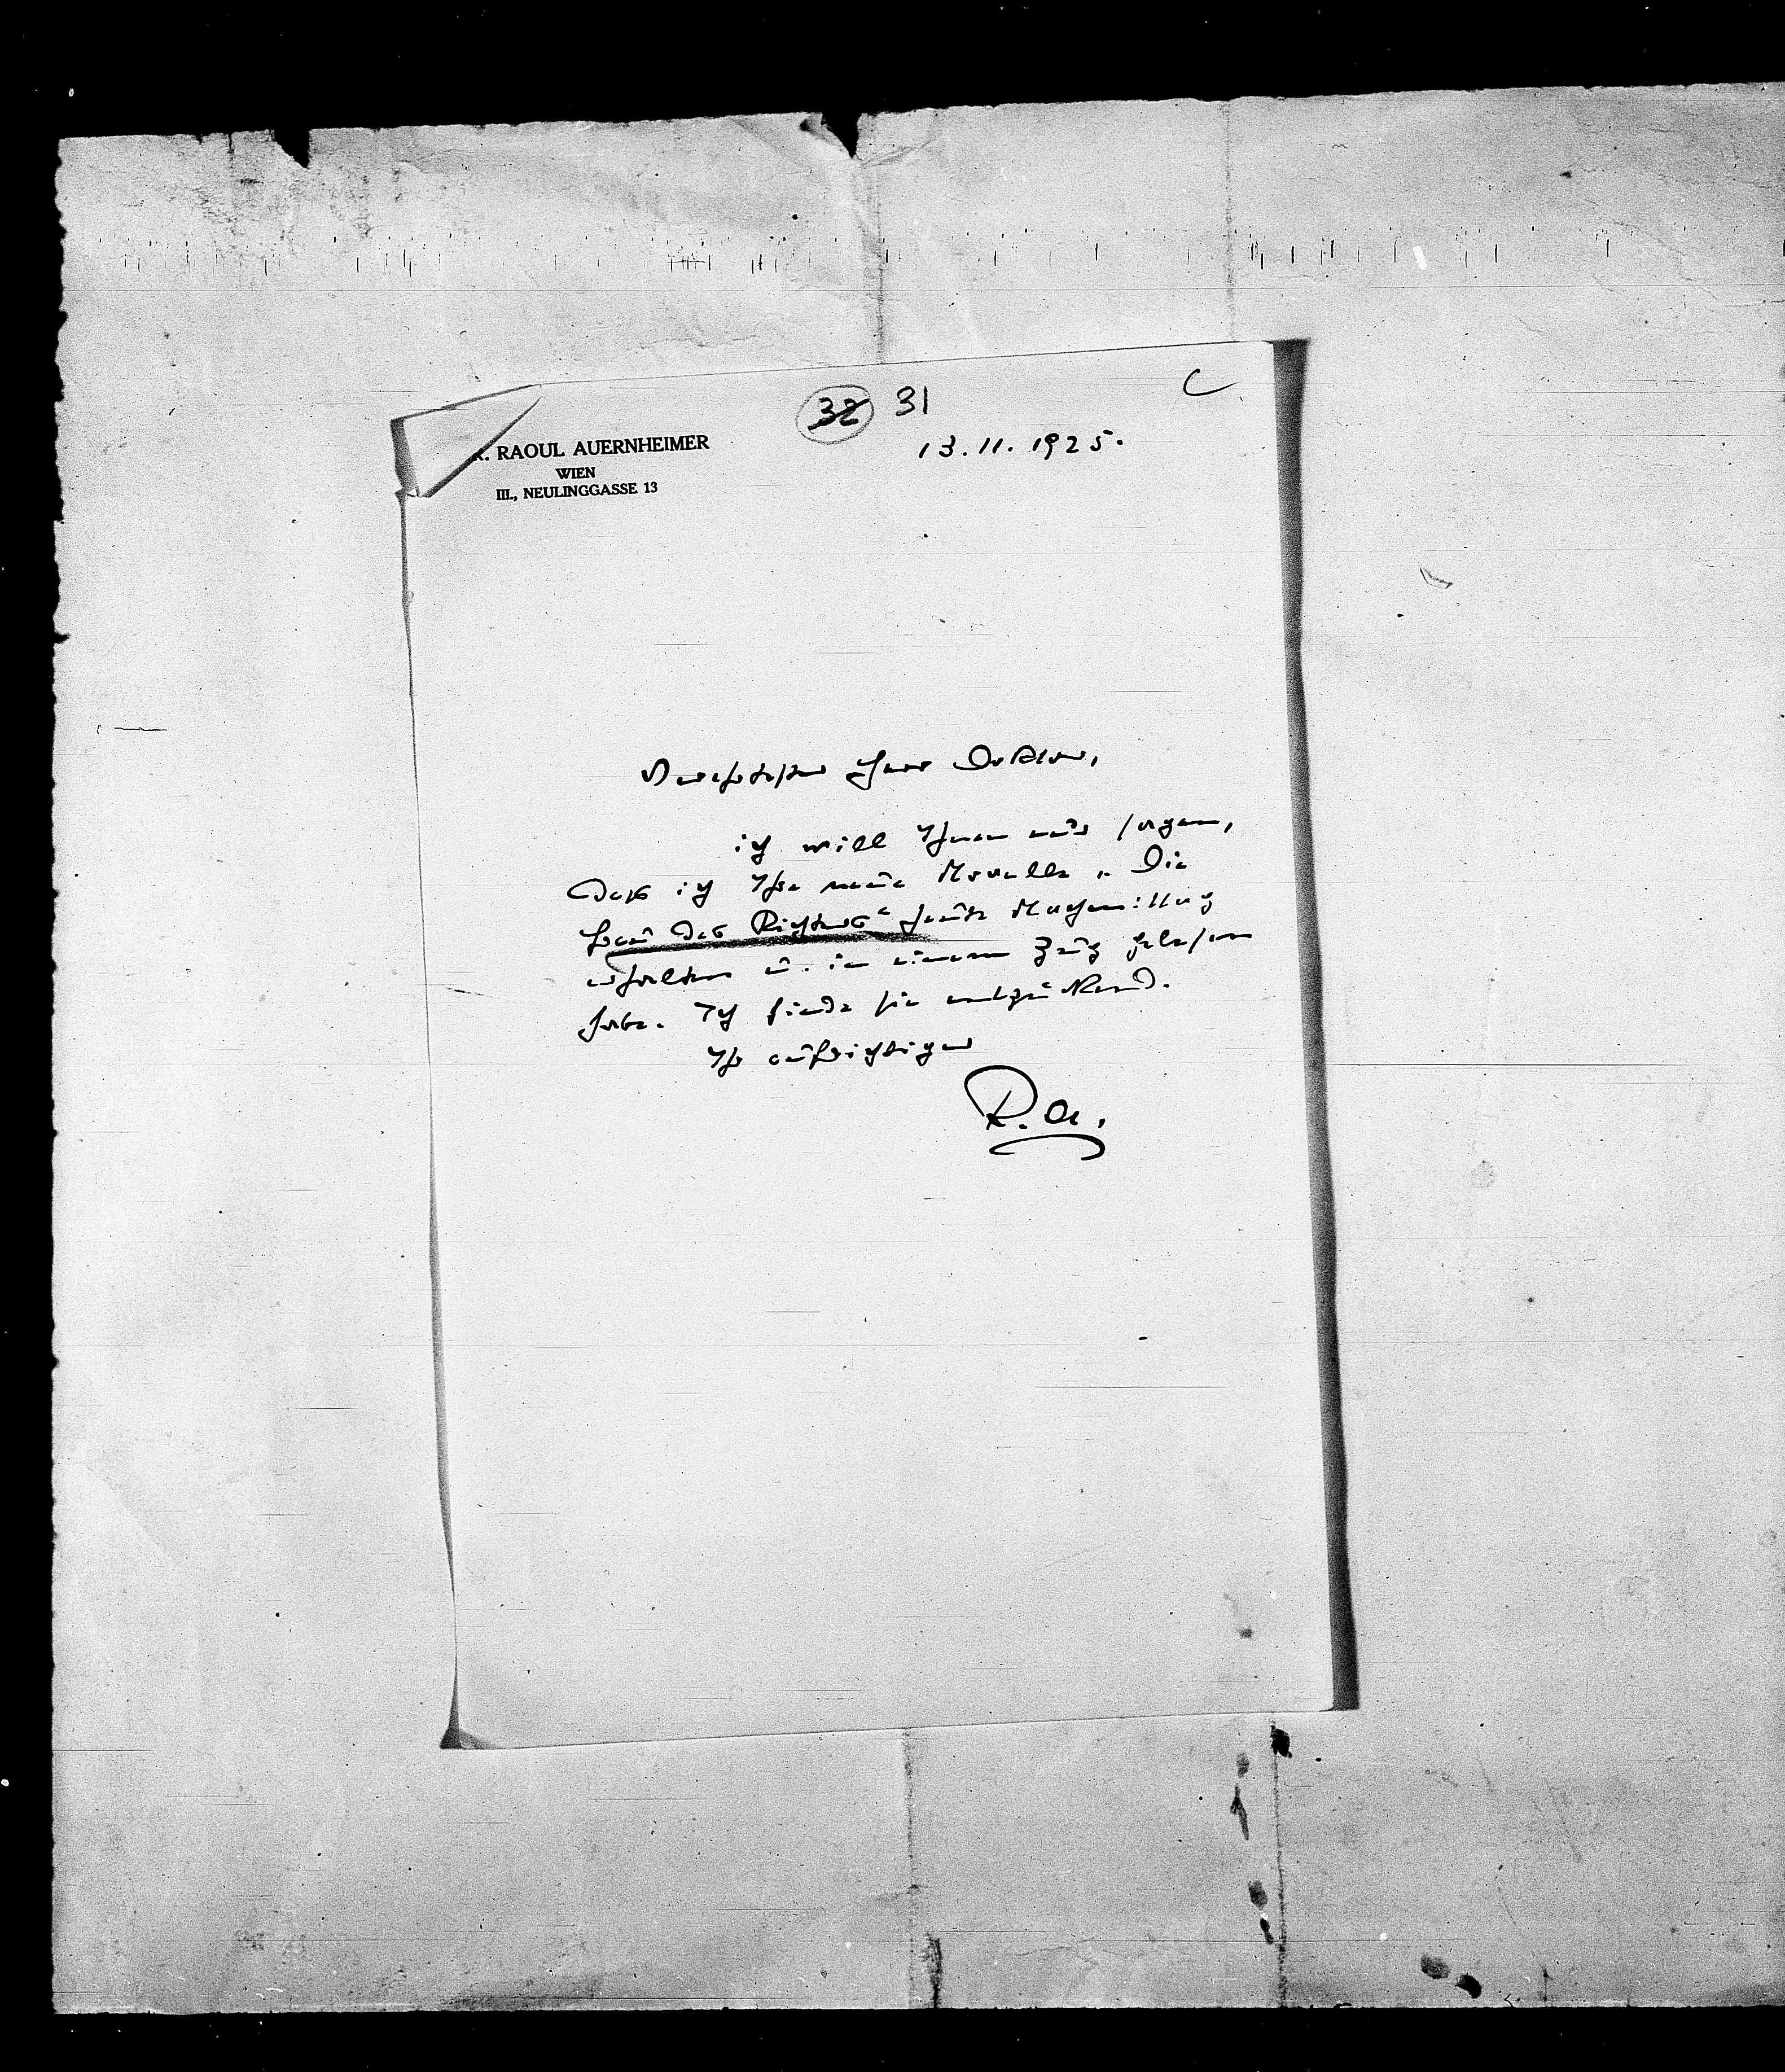 32 31 C
R. RAOUL AUERNHEIMER
WIEN
III., NEULINGGASSE 13
13. 11. 1925.
Verehrtester Herr Doktor,
ich will Ihnen nur sagen,
dass ich Ihre neue Novelle „Die
Frau des Richters“ heute Nachmittag
erhalten u. in einem Zug gelesen
habe. Ich finde sie entzückend.
Ihr aufrichtiger
R. A.